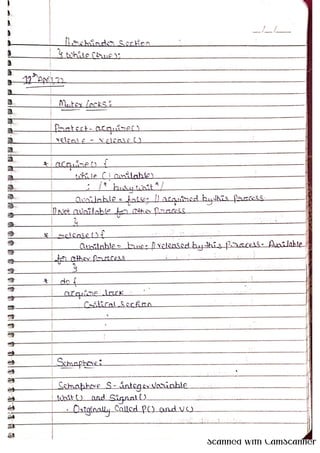 __/__/____
Remainder Section
} while (true);
Mutex locks:
Protect - acquire()
release - release()
* acquire() {
while (! available)
; /* busy wait */
available = false; // acquired by this process
// not available for other process
}
* release() {
available = true; // released by this process. Available
for other process
}
* do {
acquire lock
Critical Section
Semaphore:
Semaphore S - integer variable
wait() and Signal()
- Originally Called P() and V()
Scanned with CamScanner